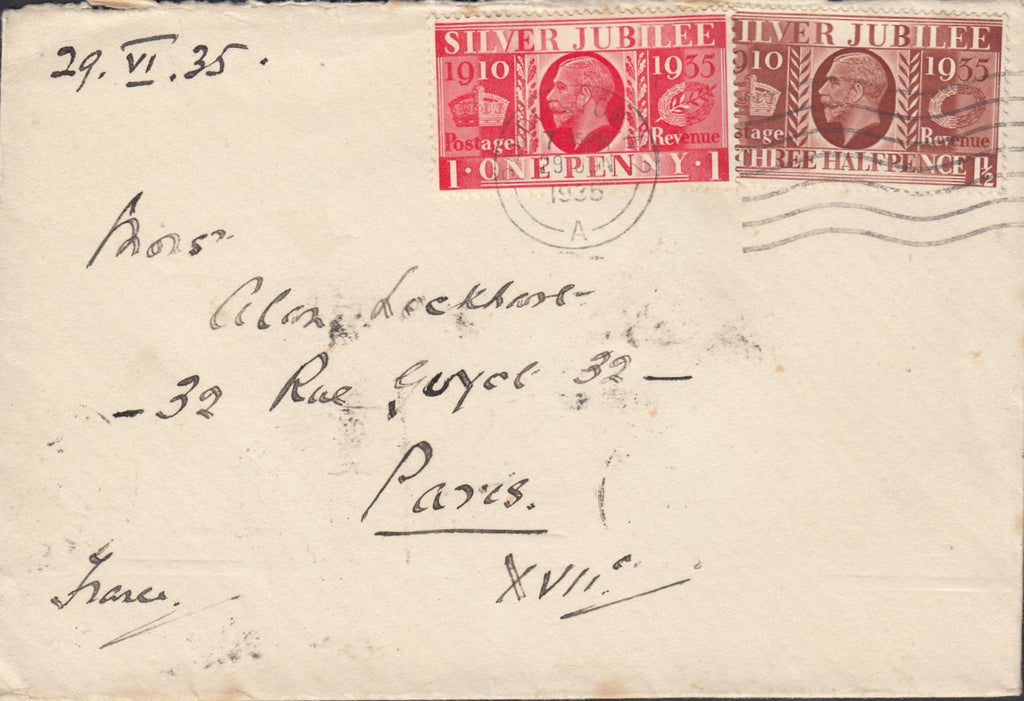 29. VI. 35.
SILVER JUBILEE
1910 1935
Postage Revenue
1 · ONE PENNY · 1
ILVER JUBILEE
910 1935
stage Revenue
THREE HALFPENCE 1½
29 JUN
1935
A
Monsr
Alan Lockhart
- 32 Rue Guyot 32 -
Paris.
XVIIe
France.